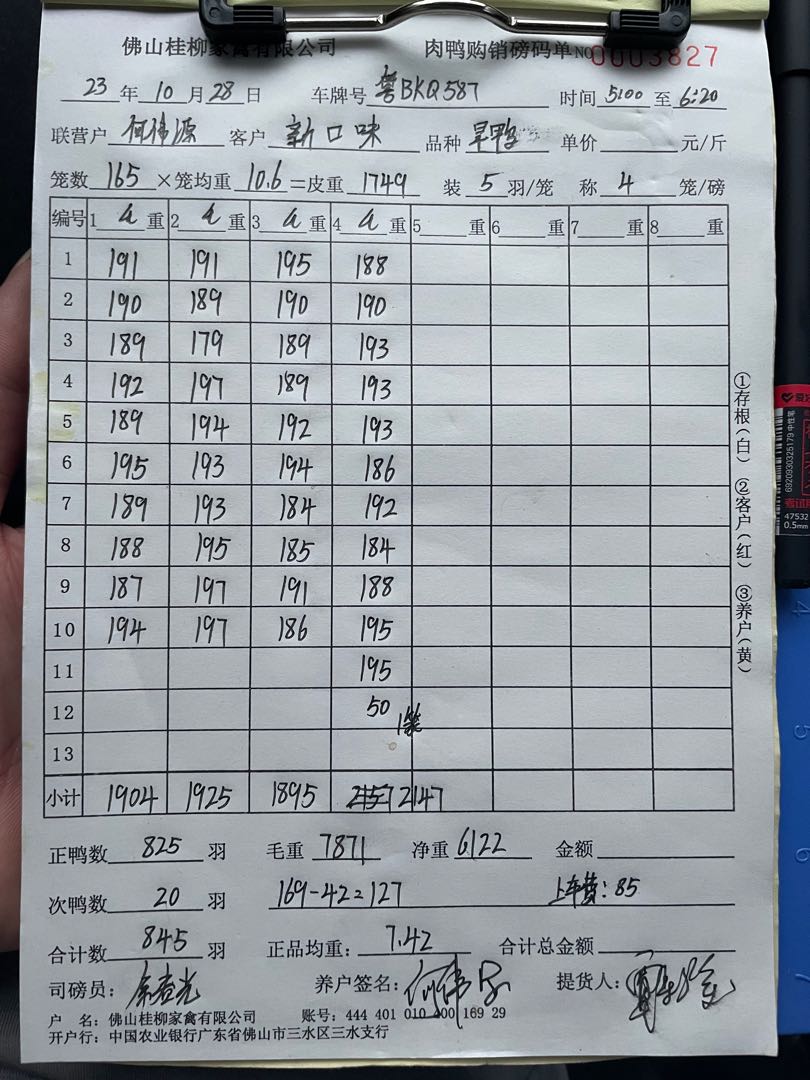 佛山桂柳家禽有限公司 肉鸭购销磅码单 NO 0003827
23年10月28日 车牌号 粤BKQ587 时间 5:00 至 6:20
联营户 何伟源 客户 新口味 品种 旱鸭 单价 元/斤
笼数 165 ×笼均重 10.6 =皮重 1749 装 5 羽/笼 称 4 笼/磅
编号 1 重 2 重 3 重 4 重 5 重 6 重 7 重 8 重
1 191 191 195 188
2 190 189 190 190
3 189 179 189 193
4 192 197 189 193
5 189 194 192 193
6 195 193 194 186
7 189 193 184 192
8 188 195 185 184
9 187 197 191 188
10 194 197 186 195
11 195
12 50 1笼
13
小计 1904 1925 1895 2147
正鸭数 825 羽 毛重 7871 净重 6122 金额
次鸭数 20 羽 169-42=127 上车费:85
合计数 845 羽 正品均重: 7.42 合计总金额
司磅员: 养户签名: 提货人:
户 名:佛山桂柳家禽有限公司 账号:444 401 010 400 169 29
开户行:中国农业银行广东省佛山市三水区三水支行
①存根(白) ②客户(红) ③养户(黄)
6920930325179 中性笔
47532
0.5mm
4
5
6
7